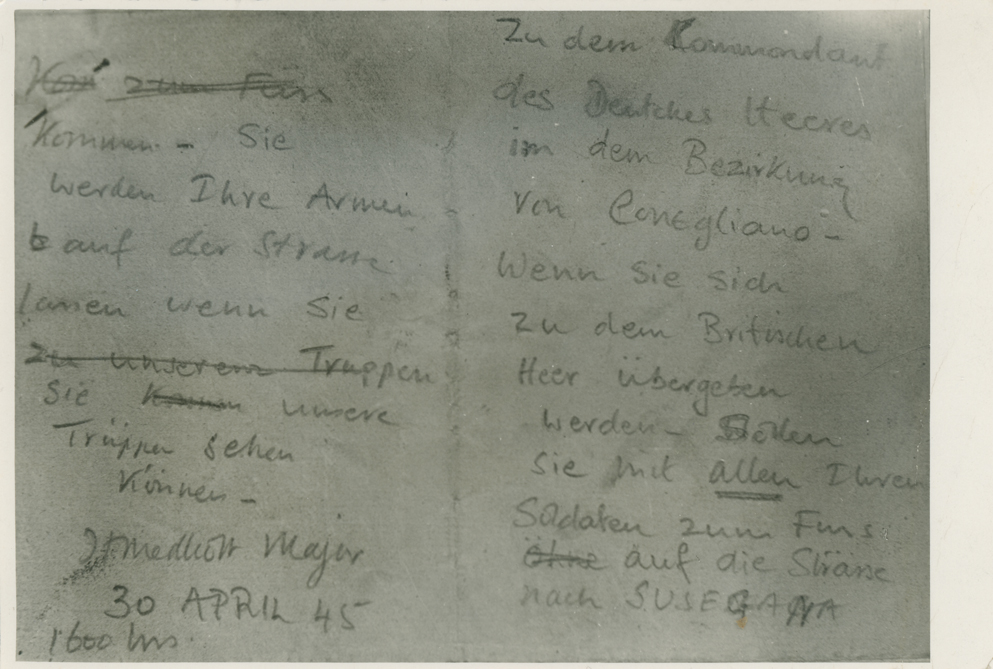 Zu dem Kommandant
des Deutches Heeres
im dem Bezirkung
von Conegliano -
Wenn Sie sich
zu dem Britischen
Heer übergeben
werden - Sollen
Sie mit allen Ihren
Soldaten zum Fuss
ohne auf die Strasse
nach SUSEGANA
zum Fuss
Kommen - Sie
werden Ihre Armen
auf der Strasse
lassen wenn Sie
zu unserem Truppen
Sie Können unsere
Truppen sehen
Können -
Major
30 APRIL 45
1600 hrs.